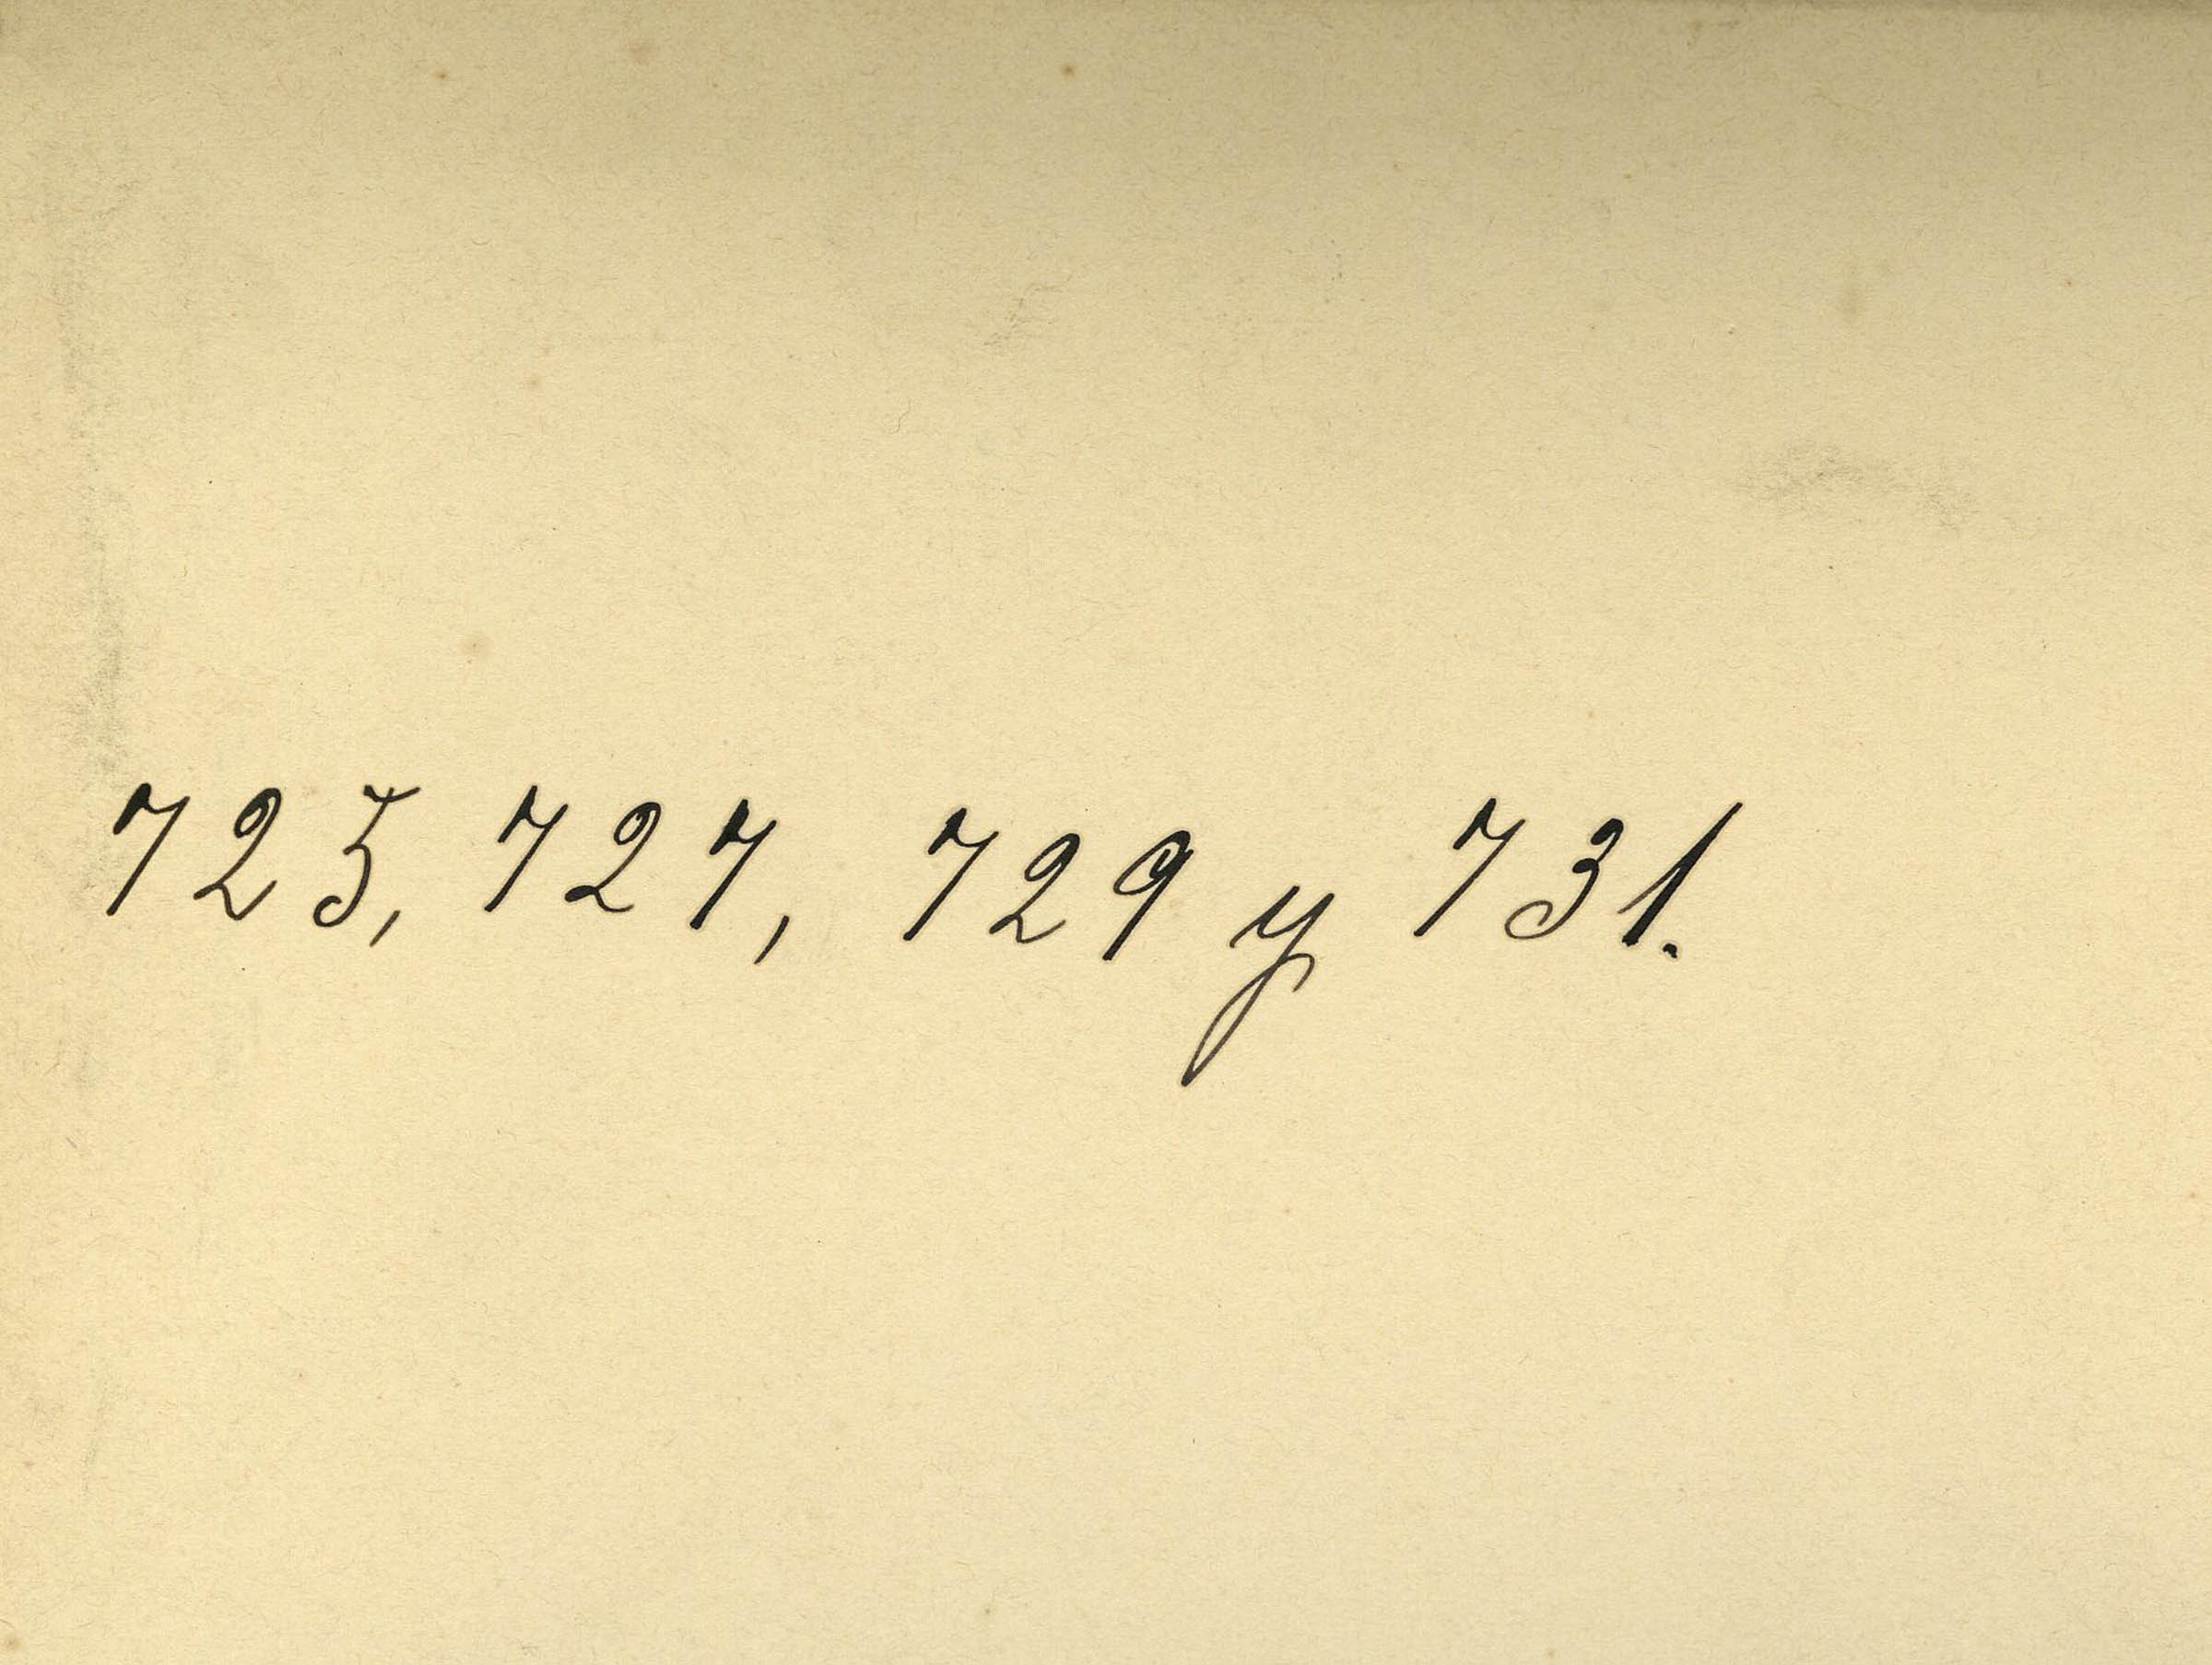 725, 727, 729 y 731.